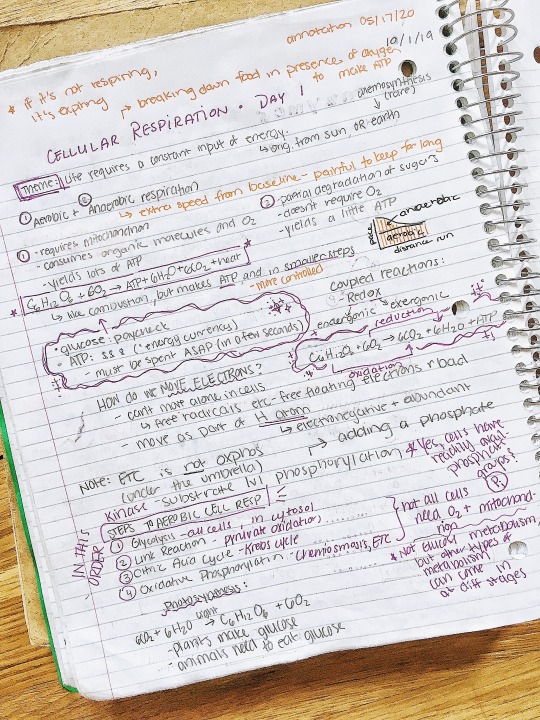 annotation 05/17/20
10/1/19
* if it's not respiring,
it's expiring
↳ breaking down food in presence of oxygen
to make ATP
CELLULAR RESPIRATION • DAY 1
chemosynthesis
(rare)
Theme: Life requires a constant input of energy.
↳ orig. from sun, OR earth
① Aerobic + ② Anaerobic respiration
↳ extra speed from baseline - painful to keep for long
① - requires mitochondrion
- consumes organic molecules and O2
- yields lots of ATP
② - partial degradation of sugars
- doesn't require O2
- yields a little ATP
pace
anaerobic
aerobic
distance run
* C6H12O6 + 6O2 → ATP + 6H2O + 6CO2 + heat
↳ like combustion, but makes ATP and in smaller steps
- more controlled
coupled reactions:
- Redox
- endergonic → exergonic
• glucose: paycheck
- ATP: $$$ (*energy currency)
- must be spent ASAP (in a few seconds)
reduction
C6H12O2 + 6O2 → 6CO2 + 6H2O + ATP
oxidation
HOW DO WE MOVE ELECTRONS?
- can't move alone in cells
↳ free radicals etc - free floating electrons r bad
- move as part of H atom
↳ electronegative + abundant
NOTE: ETC is not oxphos
(under the umbrella)
→ adding a phosphate
kinase - substrate lvl phosphorylation
* Yes, cells have
readily avail.
phosphate
groups!
P
STEPS TO AEROBIC CELL RESP
IN THIS ORDER
① Glycolysis - all cells, in cytosol
② Link Reaction - pyruvate oxidation
③ Citric Acid Cycle - Krebs cycle
④ Oxidative Phosphorylation - Chemiosmosis, ETC
not all cells
need O2 + mitochond-
rion
* Not glucose metabolism,
but other types of
metabolism
can come in
at diff stages
Photosynthesis:
6CO2 + 6H2O light→ C6H12O6 + 6O2
- plants make glucose
- animals need to eat glucose